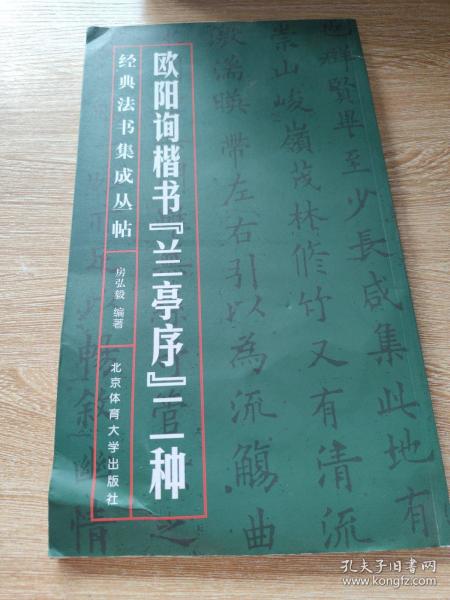 欧阳询楷书『兰亭序』二种
经典法书集成丛帖
房弘毅 编著
北京体育大学出版社
也群賢畢至少長咸集此地有
崇山峻嶺茂林修竹又有清流
激湍暎帶左右引以為流觴曲
管之
暢敘幽情
孔夫子旧书网
kongfz.com